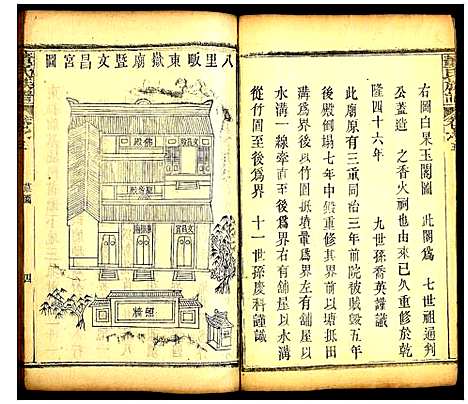 右圖白果玉閣圖　此閣爲　七世祖通判
公蓋造　之香火祠由來已久重修於乾
隆四十六年　九世孫喬英謹識
此廟原有三重同治三年前院被賊毀五年
後殿倒塌七年中殿重修其界前以塘抵田
溝爲界後以竹園抵墳爲界左有舖屋以水溝
水溝一線牽直至後爲界右有舖屋以水溝
從竹直至後爲界　十一世孫慶科謹識
八里畈東嶽廟暨文昌宮圖
佛殿
文昌宮
照牆
四